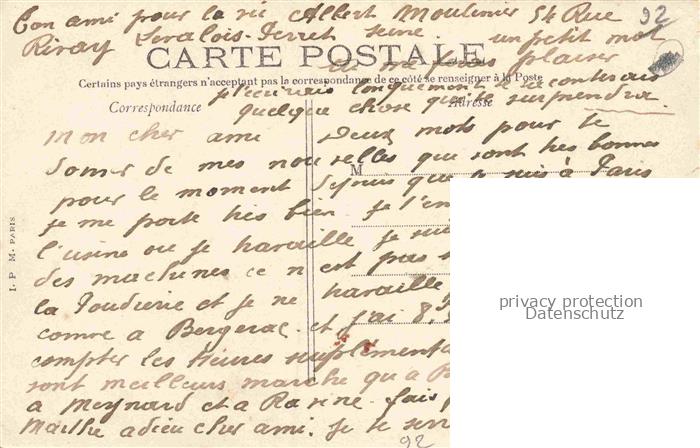 Ton ami pour la vie Albert Moulinier 54 Rue 92
Rivay Levalois-Perret Seine. un petit mot
CARTE POSTALE
me plaiser
Certains pays étrangers n'acceptant pas la correspondance de ce côté se renseigner à la Poste
longuement je te conterais
Correspondance
Adresse
quelque chose qui te surprendra.
Mon cher ami Deux mots pour te
doner de mes nouvelles qui sont tres bonnes
M
pour le moment Depuis que je suis à Paris
je me porte tres bien. je
l'usine ou je travaille je suis
des machines ce n est pas
la Poudrerie et je ne travaille
come a Bergerac. et j'ai 8,
compter les heures suplementa
sont meilleurs marche qu a
a Meynard et a Racine. fais
Marthe adieu cher ami. je te
92
I. P. M. PARIS
privacy protection
Datenschutz